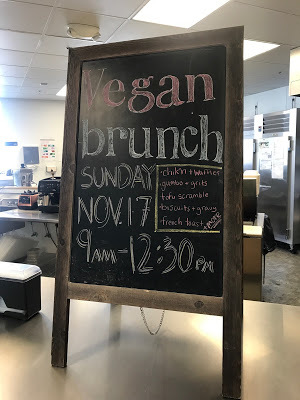 Vegan
brunch
SUNDAY
NOV. 17
9AM-12:30PM
chik'n + waffles
gumbo + grits
tofu scramble
biscuits + gravy
french toast + MORE